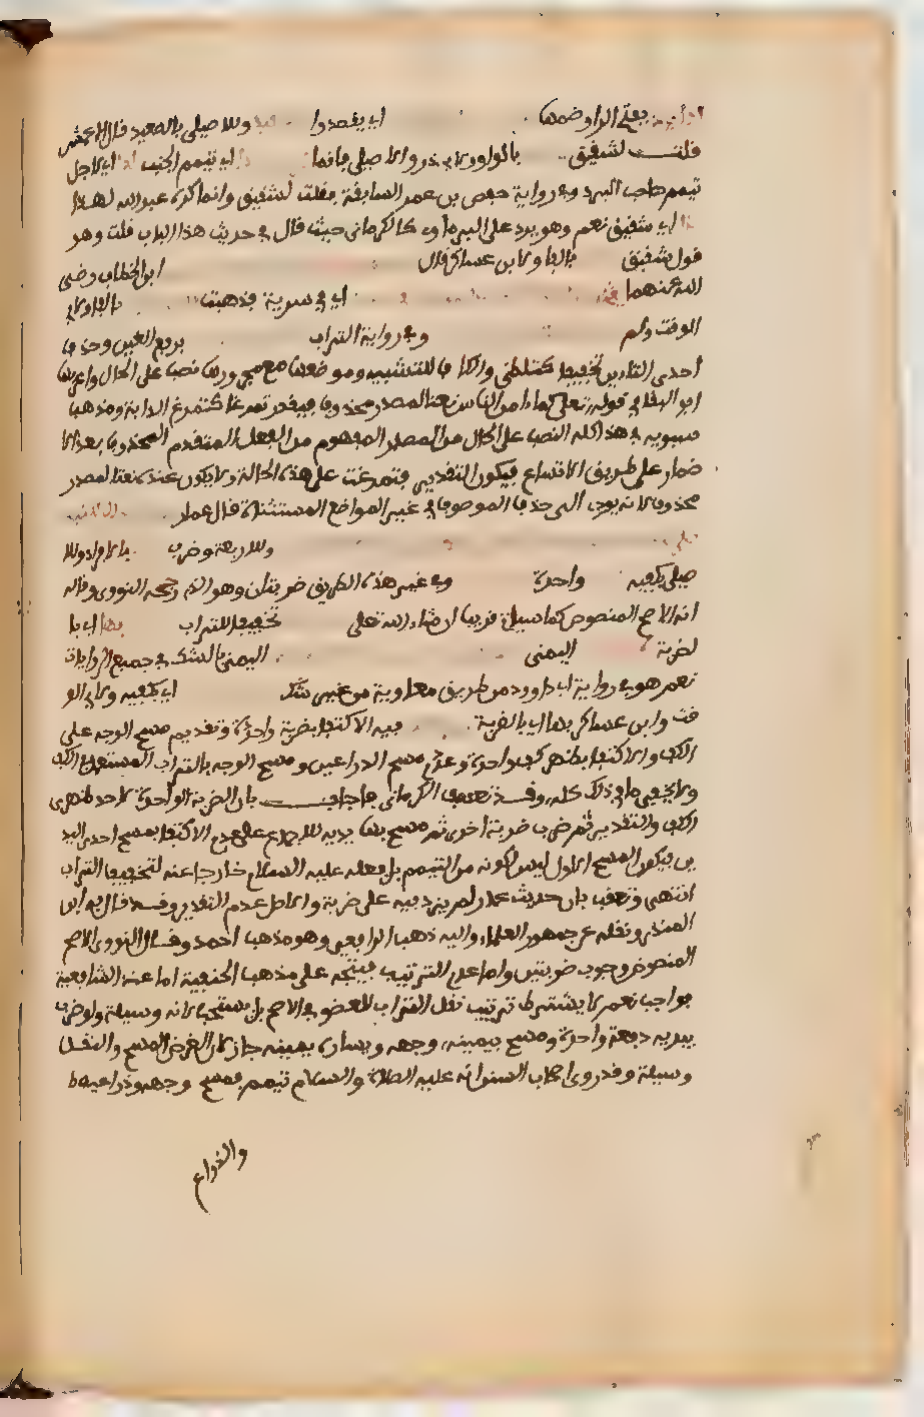 بفتح الراء وضمها اي يقصدوا وللاصيلي بالصعيد قال الاعمش
قلت لشقيق بالواو ولابي ذر والاصيلي فانما اي تيمم الجنب اي لاجل
تيمم صاحب البرد وفي رواية حفص بن عمر السابقة فقلت لشقيق وانما كره عبد الله لهذا
اي شقيق نعم وهو يرد على البرماوي كالكرماني حيث قال في حديث هذا الباب قلت وهو
قول شقيق بالفاء ولابن عساكر قال ابو الخطاب رضي
الله عنهما اي في سرية فذهبت بالفاء ولابي
الوقت ولم وفي رواية التراب برفع الغين وحذف
احدى التاءين تخفيفا كتلظى والكاف للتشبيه وموضعها مع مجرورها نصب على الحال واعربها
ابو البقاء في قوله تعلى كما ءامن الناس نعتا لمصدر محذوف فيقدر تمرغا كتمرغ الدابة ومذهب
سيبويه في هذا كله النصب على الحال من المصدر المفهوم من الفعل المتقدم المحذوف بعد الا
ضمار على طريق الاتساع فيكون التقدير فتمرغت على هذه الحالة ولا يكون عنده نعتا لمصدر
محذوف لانه يودي الى حذف الموصوف في غير المواضع المستثناة قال عمار
وللاربعة وضرب بالافراد وللا
صيلي بكفيه واحدة وفي غير هذه الطريق ضربتان وهو الذي رجحه النووي وقال
انه الاصح المنصوص كما سياتي قريبا ان شاء الله تعلى تخفيفا للتراب بها اي با
لضربة اليمنى اليمنى بالشك في جميع الروايات
نعم هو في رواية ابي داوود من طريق معاوية من غير شك اي بكفيه ولابي الو
قت وابن عساكر بها اي بالضربة فيه الاكتفاء بضربة واحدة وتقديم مسح الوجه على
الكف والاكتفاء بظهر كف واحدة وعدم مسح الذراعين ومسح الوجه بالتراب المستعمل في الكف
ولا يخفى ما في ذلك كله وقد تعسف الكرماني فاجاب بان الضربة الواحدة لاحد ظهري
الكف والتقدير ثم ضرب ضربة اخرى ثم مسح بها يديه للاجماع على عدم الاكتفاء بمسح احدى اليد
ين فيكون المسح الاول ليس لكونه من التيمم بل فعله عليه السلام خارجا عنه لتخفيف التراب
انتهى وتعقب بان حديث عمار لم يزد فيه على ضربة والاصل عدم التقدير وقد قال به ابن
المنذر ونقله عن جمهور العلماء واليه ذهب الرافعي وهو مذهب احمد وقال النووي الاصح
المنصوص وجوب ضربتين واما عدم الترتيب فيتجه على مذهب الحنفية اما عند الشافعية
فواجب نعم لا يشترط ترتيب نقل التراب للعضو في الاصح بل يستحب لانه وسيلة ولو ضرب
بيديه دفعة واحدة ومسح بيمينه وجهه وبيساره يمينه جاز لان الفرض المسح والنقل
وسيلة وقد روى اصحاب السنن انه عليه الصلاة والسلام تيمم فمسح وجهه وذراعيه
والذراع